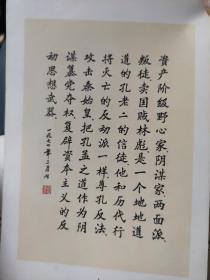 资产阶级野心家阴谋家两面派、
叛徒卖国贼林彪，是一个地地道
道的孔老二的信徒。他和历代行
将灭亡的反动派一样，尊孔反法，
攻击秦始皇，把孔孟之道作为阴
谋篡党夺权、复辟资本主义的反
动思想武器。